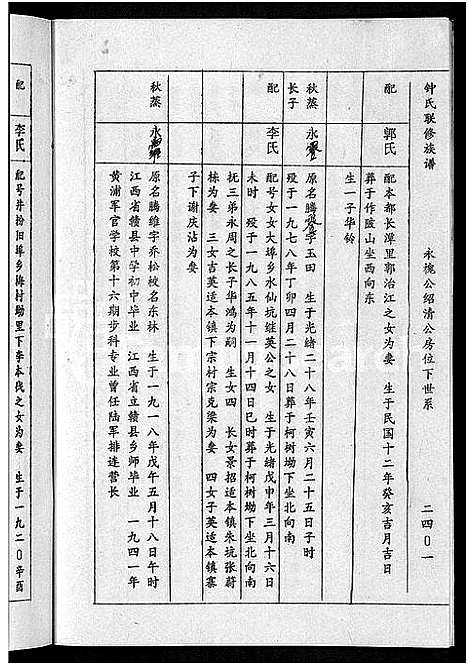 钟氏联修族谱
永槐公绍清公房位下世系
二四〇一
配
郭氏
配本都长潭里郭治江之女为妻 生于民国十二年癸亥吉月吉日
葬于作陂山坐西向东
生一子华铃
秋蒸
长子
永
原名腾 字玉田 生于光绪二十八年壬寅六月二十五日子时
殁于一九七八年丁卯四月二十八日葬于柯树坳下坐北向南
配
李氏
配号女女大埠乡水仙坑蛙英公之女 生于光绪戊申年三月十六日
未时 殁于一九八五年十一月十四日巳时葬于柯树坳下坐北向南
抚三弟永周之长子华鸿为嗣 生女四 长女景招适本镇朱坑张蔚
栋为妻 三女吉英适本镇下宗村宗克梁为妻 四女子英适本镇寨
子下谢庆沾为妻
秋蒸
永
原名腾维字乔松校名东林 生于一九一八年戊午五月十八日午时
江西省赣县中学初中毕业 江西省立赣县乡师毕业 一九四一年
黄浦军官学校第十六期步科专业曾任陆军排连营长
配
李氏
配号井拾旧埠乡梅村坳里下李本伐之女为妻 生于一九二〇辛酉